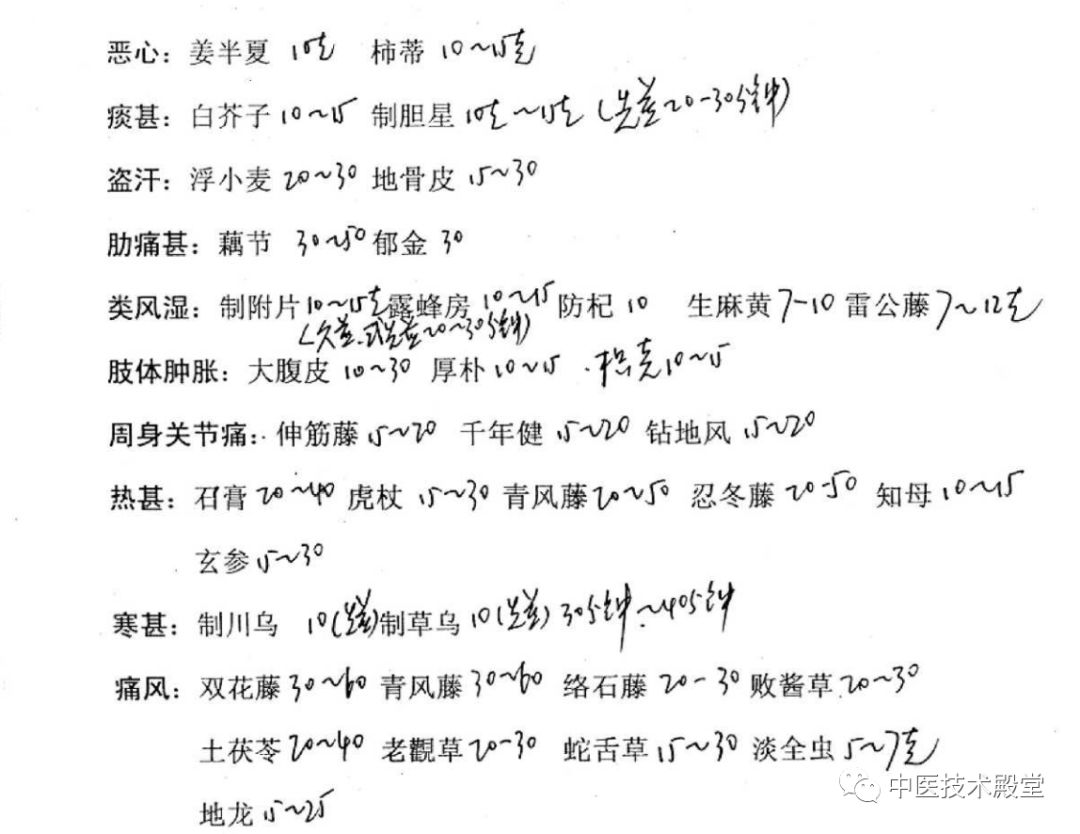 恶心：姜半夏 10克 柿蒂 10～15克
痰甚：白芥子 10～15 制胆星 10克～15克（先煎20-30分钟）
盗汗：浮小麦 20～30 地骨皮 15～30
肋痛甚：藕节 30～50 郁金 30
类风湿：制附片 10～15克 露蜂房 10～15 防杞 10 生麻黄 7-10 雷公藤 7～12克
（久煎.或先煎20～30分钟）
肢体肿胀：大腹皮 10～30 厚朴 10～15 .枳壳 10～15
周身关节痛：伸筋藤 15～20 千年健 15～20 钻地风 15～20
热甚：石膏 20～40 虎杖 15～30 青风藤 20～50 忍冬藤 20-50 知母 10～15
玄参 15～30
寒甚：制川乌 10（先煎）制草乌 10（先煎）30分钟～40分钟
痛风：双花藤 30～60 青风藤 30～60 络石藤 20-30 败酱草 20～30
土茯苓 20～40 老觀草 20-30 蛇舌草 15～30 淡全虫 5～7克
地龙 15～25
中医技术殿堂